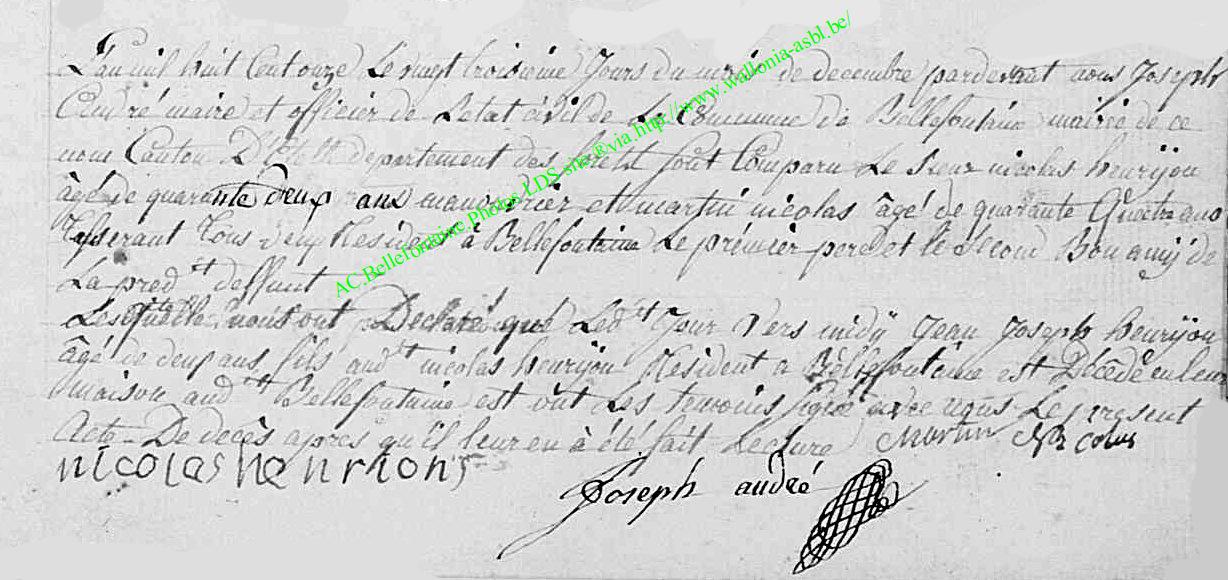 L'an mil huit Cent onze Le vingt troisieme Jours du mois de decembre pardevant nous Joseph
André maire et officier de L'etat civil de La Commune de Bellefontaine mairie de ce
nom Canton D' departement des forêts sont Comparu Le Sieur nicolas henrijon
âgé de quarante deux ans manouvrier et martin nicolas âgé de quarante Quatre ans
tous deux Resident à Bellefontaine Le prémier pere et le Second Bon amÿ de
La pred.it deffunt
Lesquelle nous ont Declaré que Led.it Jour vers midÿ Jean Joseph henrijon
âgé de deux ans fils aud.it nicolas henrijon Resident a Bellefontaine est Décédé en leur
maison aud.it Bellefontaine est ont Les temoins signé avec nous Le present
Acte De decès apres qu'il leur en à été fait Lecture Martin Nicolas
nicolas henrions
Joseph andré
AC.Bellefontaine.Photos.LDS.site.®via.http://www.wallonia-asbl.be/